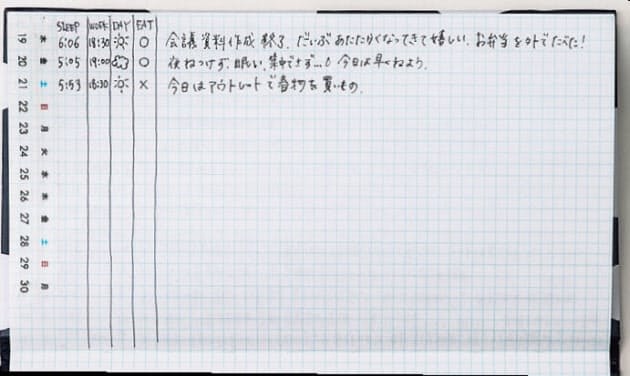 SLEEP WORK DAY EAT
19 木 6:06 18:30 ○ 会議資料作成終了. だいぶあたたかくなってきて嬉しい. お弁当を外でたべた!
20 金 5:05 19:00 ○ 夜ねつけず, 眠い, 集中できず…! 今日は早くねよう.
21 土 5:53 18:30 × 今日はアウトレットで春物を買いもの.
22 日
23 月
24 火
25 水
26 木
27 金
28 土
29 日
30 月